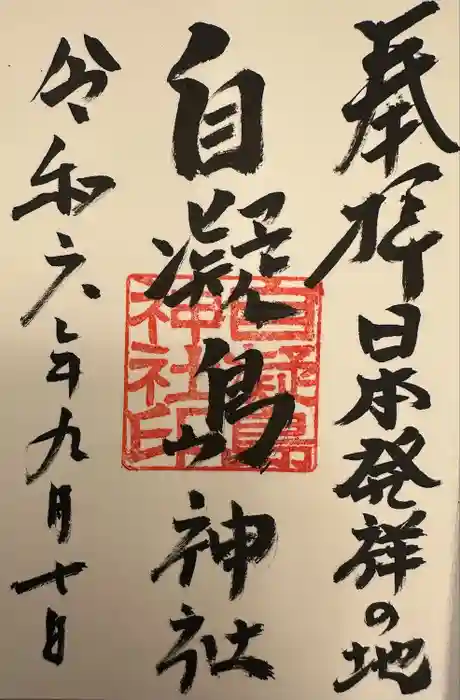 奉拝 日本発祥の地
自凝島神社
自凝島
神社印
令和六年九月十日